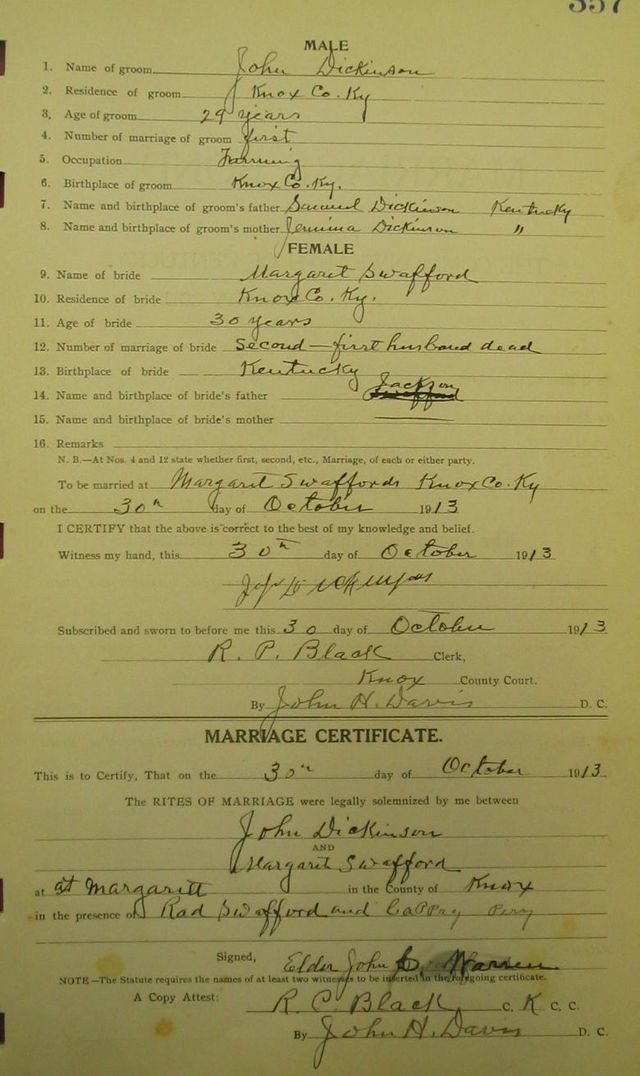 357
MALE
1. Name of groom John Dickinson
2. Residence of groom Knox Co. Ky
3. Age of groom 29 years
4. Number of marriage of groom first
5. Occupation Farming
6. Birthplace of groom Knox Co. Ky.
7. Name and birthplace of groom's father Samuel Dickinson Kentucky
8. Name and birthplace of groom's mother Jemima Dickinson "
FEMALE
9. Name of bride Margarit Swafford
10. Residence of bride Knox Co. Ky.
11. Age of bride 30 years
12. Number of marriage of bride Second — first husband dead
13. Birthplace of bride Kentucky
14. Name and birthplace of bride's father Jackson
15. Name and birthplace of bride's mother
16. Remarks
N. B.—At Nos. 4 and 12 state whether first, second, etc., Marriage, of each or either party.
To be married at Margarit Swaffords Knox Co. Ky
on the 30th day of October 1913
I CERTIFY that the above is correct to the best of my knowledge and belief.
Witness my hand, this 30th day of October 1913
Subscribed and sworn to before me this 30 day of October 1913
R. P. Black Clerk,
Knox County Court.
By John H. Davis D. C.
MARRIAGE CERTIFICATE.
This is to Certify, That on the 30th day of October 1913
The RITES OF MARRIAGE were legally solemnized by me between
John Dickinson
AND
Margarit Swafford
at at Margaritt in the County of Knox
in the presence of Rad Swafford and
Signed, Elder John Warren
NOTE—The Statute requires the names of at least two witnesses to be inserted in the foregoing certificate.
A Copy Attest: R. P. Black C. K C. C.
By John H. Davis D. C.